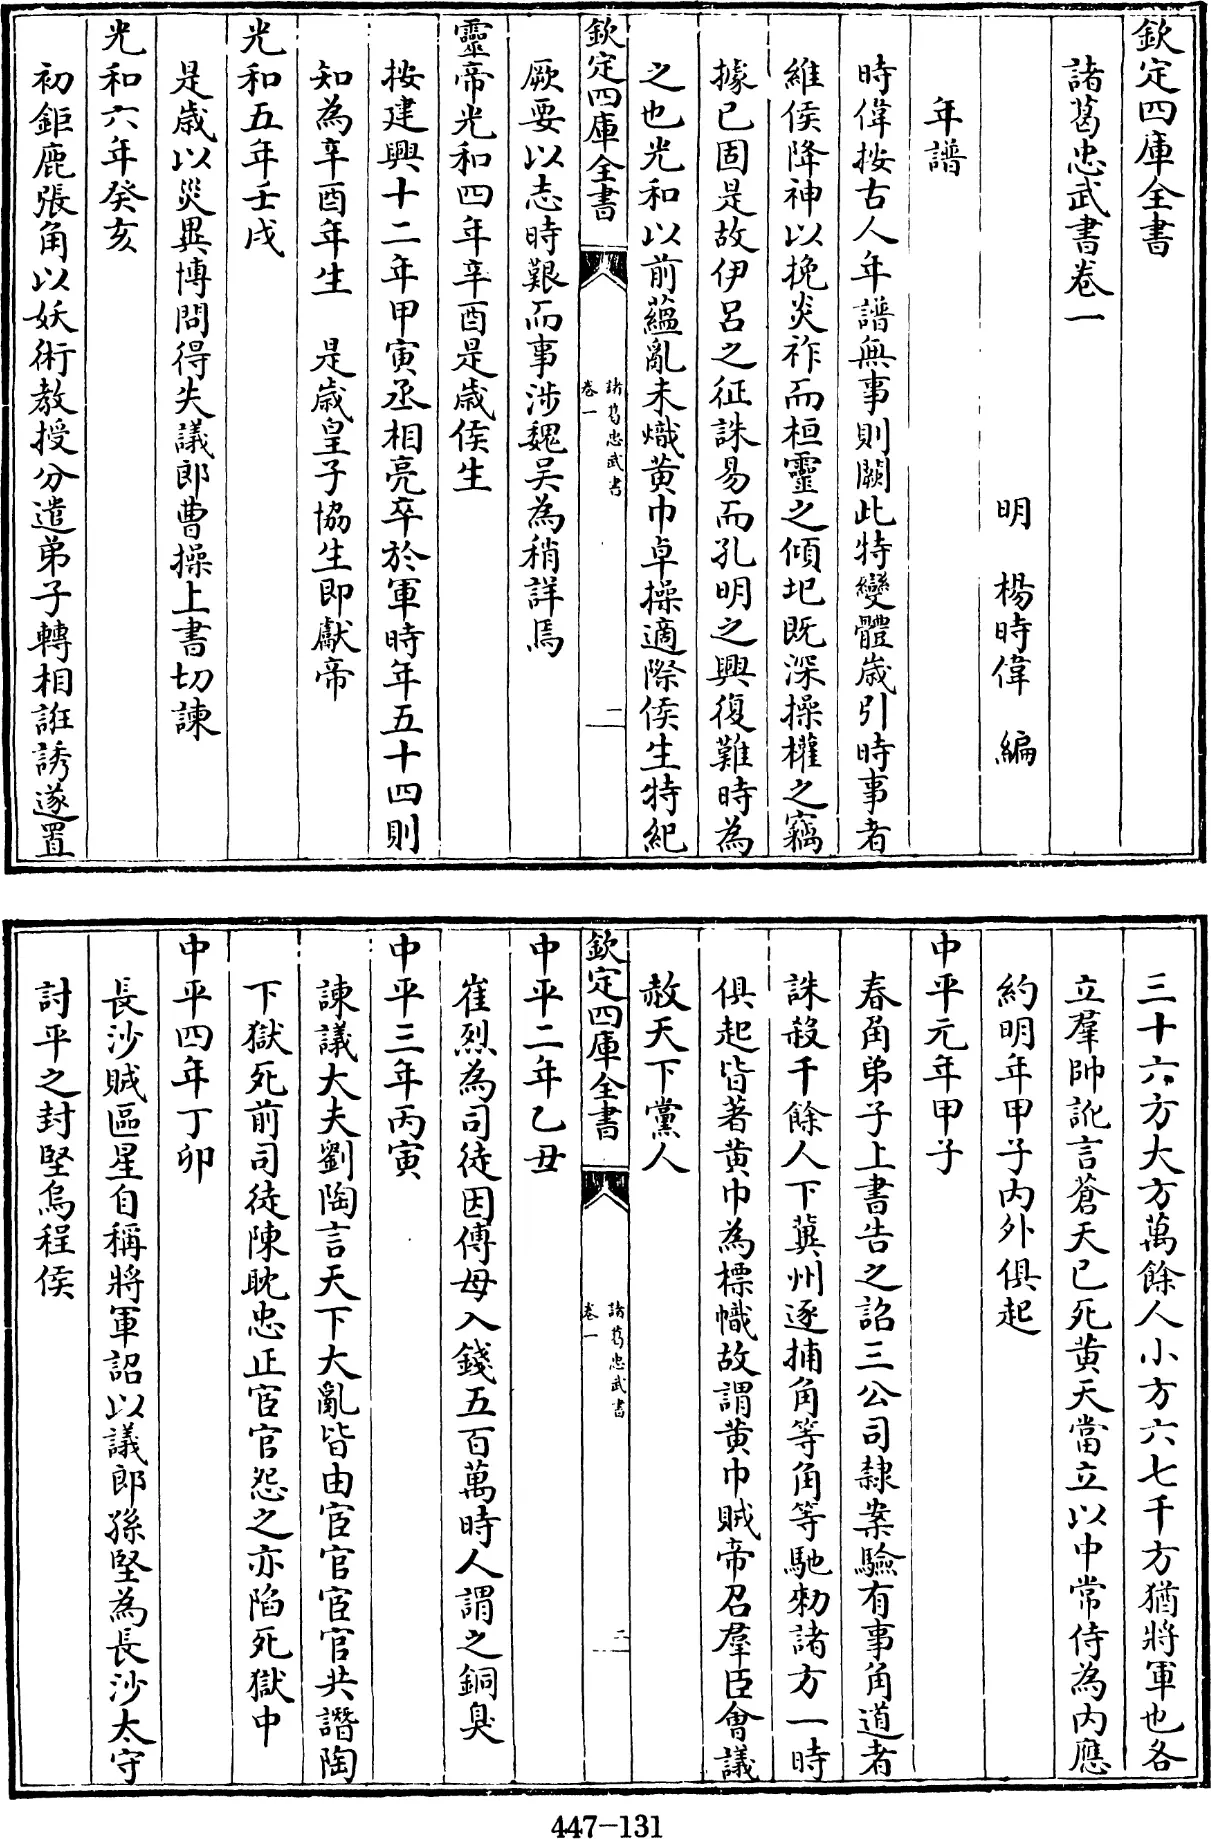 欽定四庫全書
諸葛忠武書卷一
明 楊時偉 編
年譜
時偉按古人年譜無事則闕此特變體歲引時事者
維侯降神以挽炎祚而桓靈之傾圯既深操權之竊
據已固是故伊呂之征誅易而孔明之興復難時為
之也光和以前蘊亂未熾黄巾卓操適際侯生特紀
欽定四庫全書
諸葛忠武書
卷一
一
厥要以志時艱而事涉魏吴為稍詳焉
靈帝光和四年辛酉是歲侯生
按建興十二年甲寅丞相亮卒於軍時年五十四則
知為辛酉年生 是歲皇子協生即獻帝
光和五年壬戌
是歲以災異博問得失議郎曹操上書切諫
光和六年癸亥
初鉅鹿張角以妖術教授分遣弟子轉相誑誘遂置
三十六方大方萬餘人小方六七千方猶將軍也各
立羣帥訛言蒼天已死黄天當立以中常侍為内應
約明年甲子内外俱起
中平元年甲子
春角弟子上書告之詔三公司隸案驗有事角道者
誅殺千餘人下冀州逐捕角等角等馳勑諸方一時
俱起皆著黄巾為標幟故謂黄巾賊帝召羣臣會議
赦天下黨人
欽定四庫全書
諸葛忠武書
卷一
二
中平二年乙丑
崔烈為司徒因傅母入錢五百萬時人謂之銅臭
中平三年丙寅
諫議大夫劉陶言天下大亂皆由宦官宦官共譖陶
下獄死前司徒陳耽忠正宦官怨之亦陷死獄中
中平四年丁卯
長沙賊區星自稱將軍詔以議郎孫堅為長沙太守
討平之封堅烏程侯
447-131